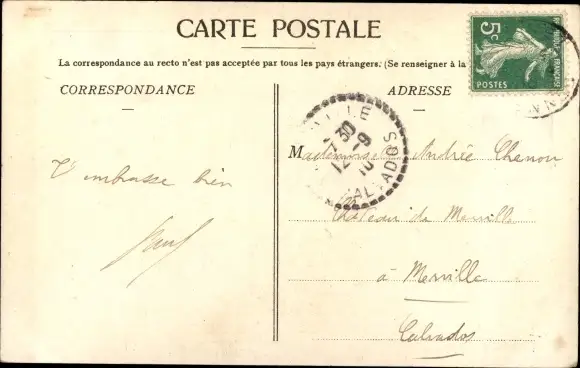 CARTE POSTALE
La correspondance au recto n'est pas acceptée par tous les pays étrangers. (Se renseigner à la
CORRESPONDANCE
ADRESSE
5c
POSTES
VILLE
7 30
12 -9
10
CALVADOS
T'embrasse bien
Mademoiselle Andrée Chenon
Château de Merville
à Merville
Calvados